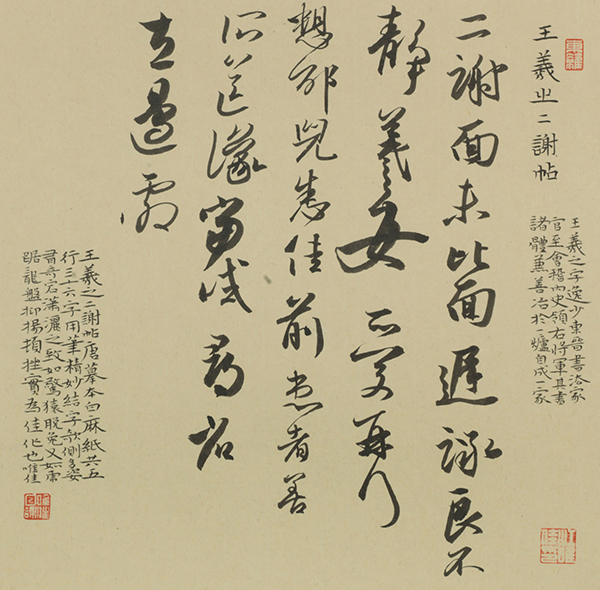 王羲之二謝帖
王羲之字逸少東晉書法家
官至會稽內史領右將軍其書
諸體兼善冶於一爐自成一家
二謝面未比面遲詠良不
靜羲之女愛再拜
想邵兒悉佳前患者善
所送議當試尋省
左邊劇
王羲之二謝帖唐摹本白麻紙共五
行三十六字用筆精妙結字欹側多姿
書奇宕瀟灑之致如驚猿脫兔又如虎
踞龍盤抑揚頓挫實為佳作也惟佳